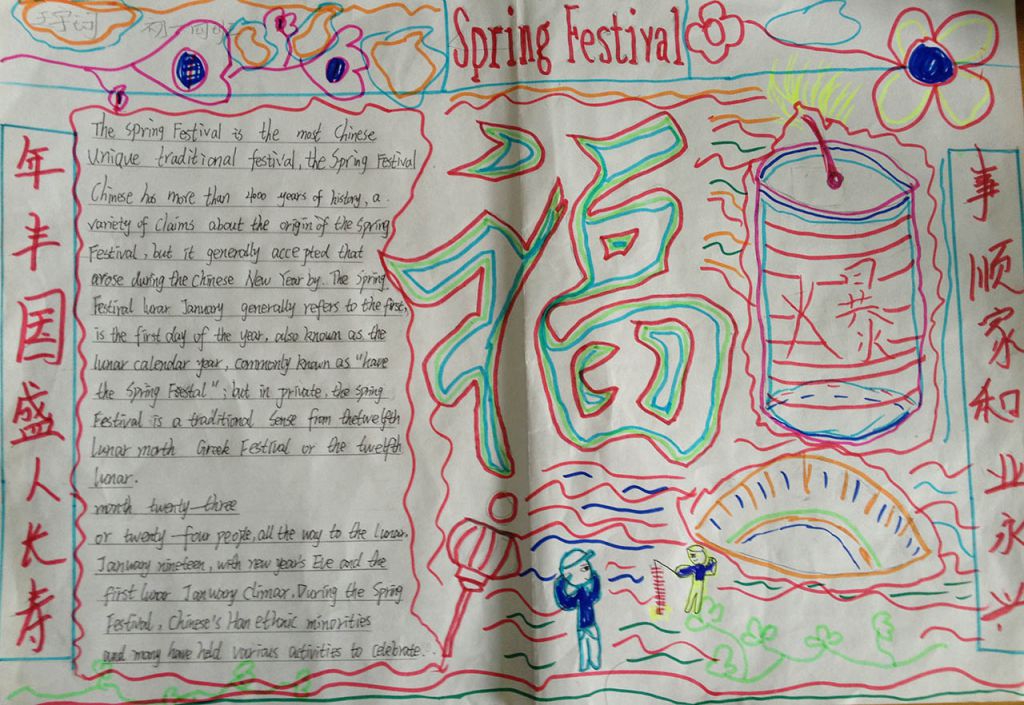 Spring Festival
年丰国盛人长寿
The Spring Festival is the most Chinese
Unique traditional festival, the Spring Festival
Chinese has more than 4000 years of history, a
variety of claims about the origin of the Spring
Festival, but it generally accepted that
arose during the Chinese New Year by. The spring
Festival lunar January generally refers to the first,
is the first day of the year, also known as the
lunar calendar year, commonly known as "have
the Spring Festal"; but in private, the spring
Festival is a traditional sense from thetwelfth
lunar month Greek Festival or the twelfth
lunar.
month twenty-three
or twenty-four people, all the way to the lunar.
January nineteen, with new year's Eve and the
first lunar January climax. During the Spring
Festival, Chinese's Han ethnic minorities
and many have held various activities to celebrate.
福
火爆
事顺家和业永兴